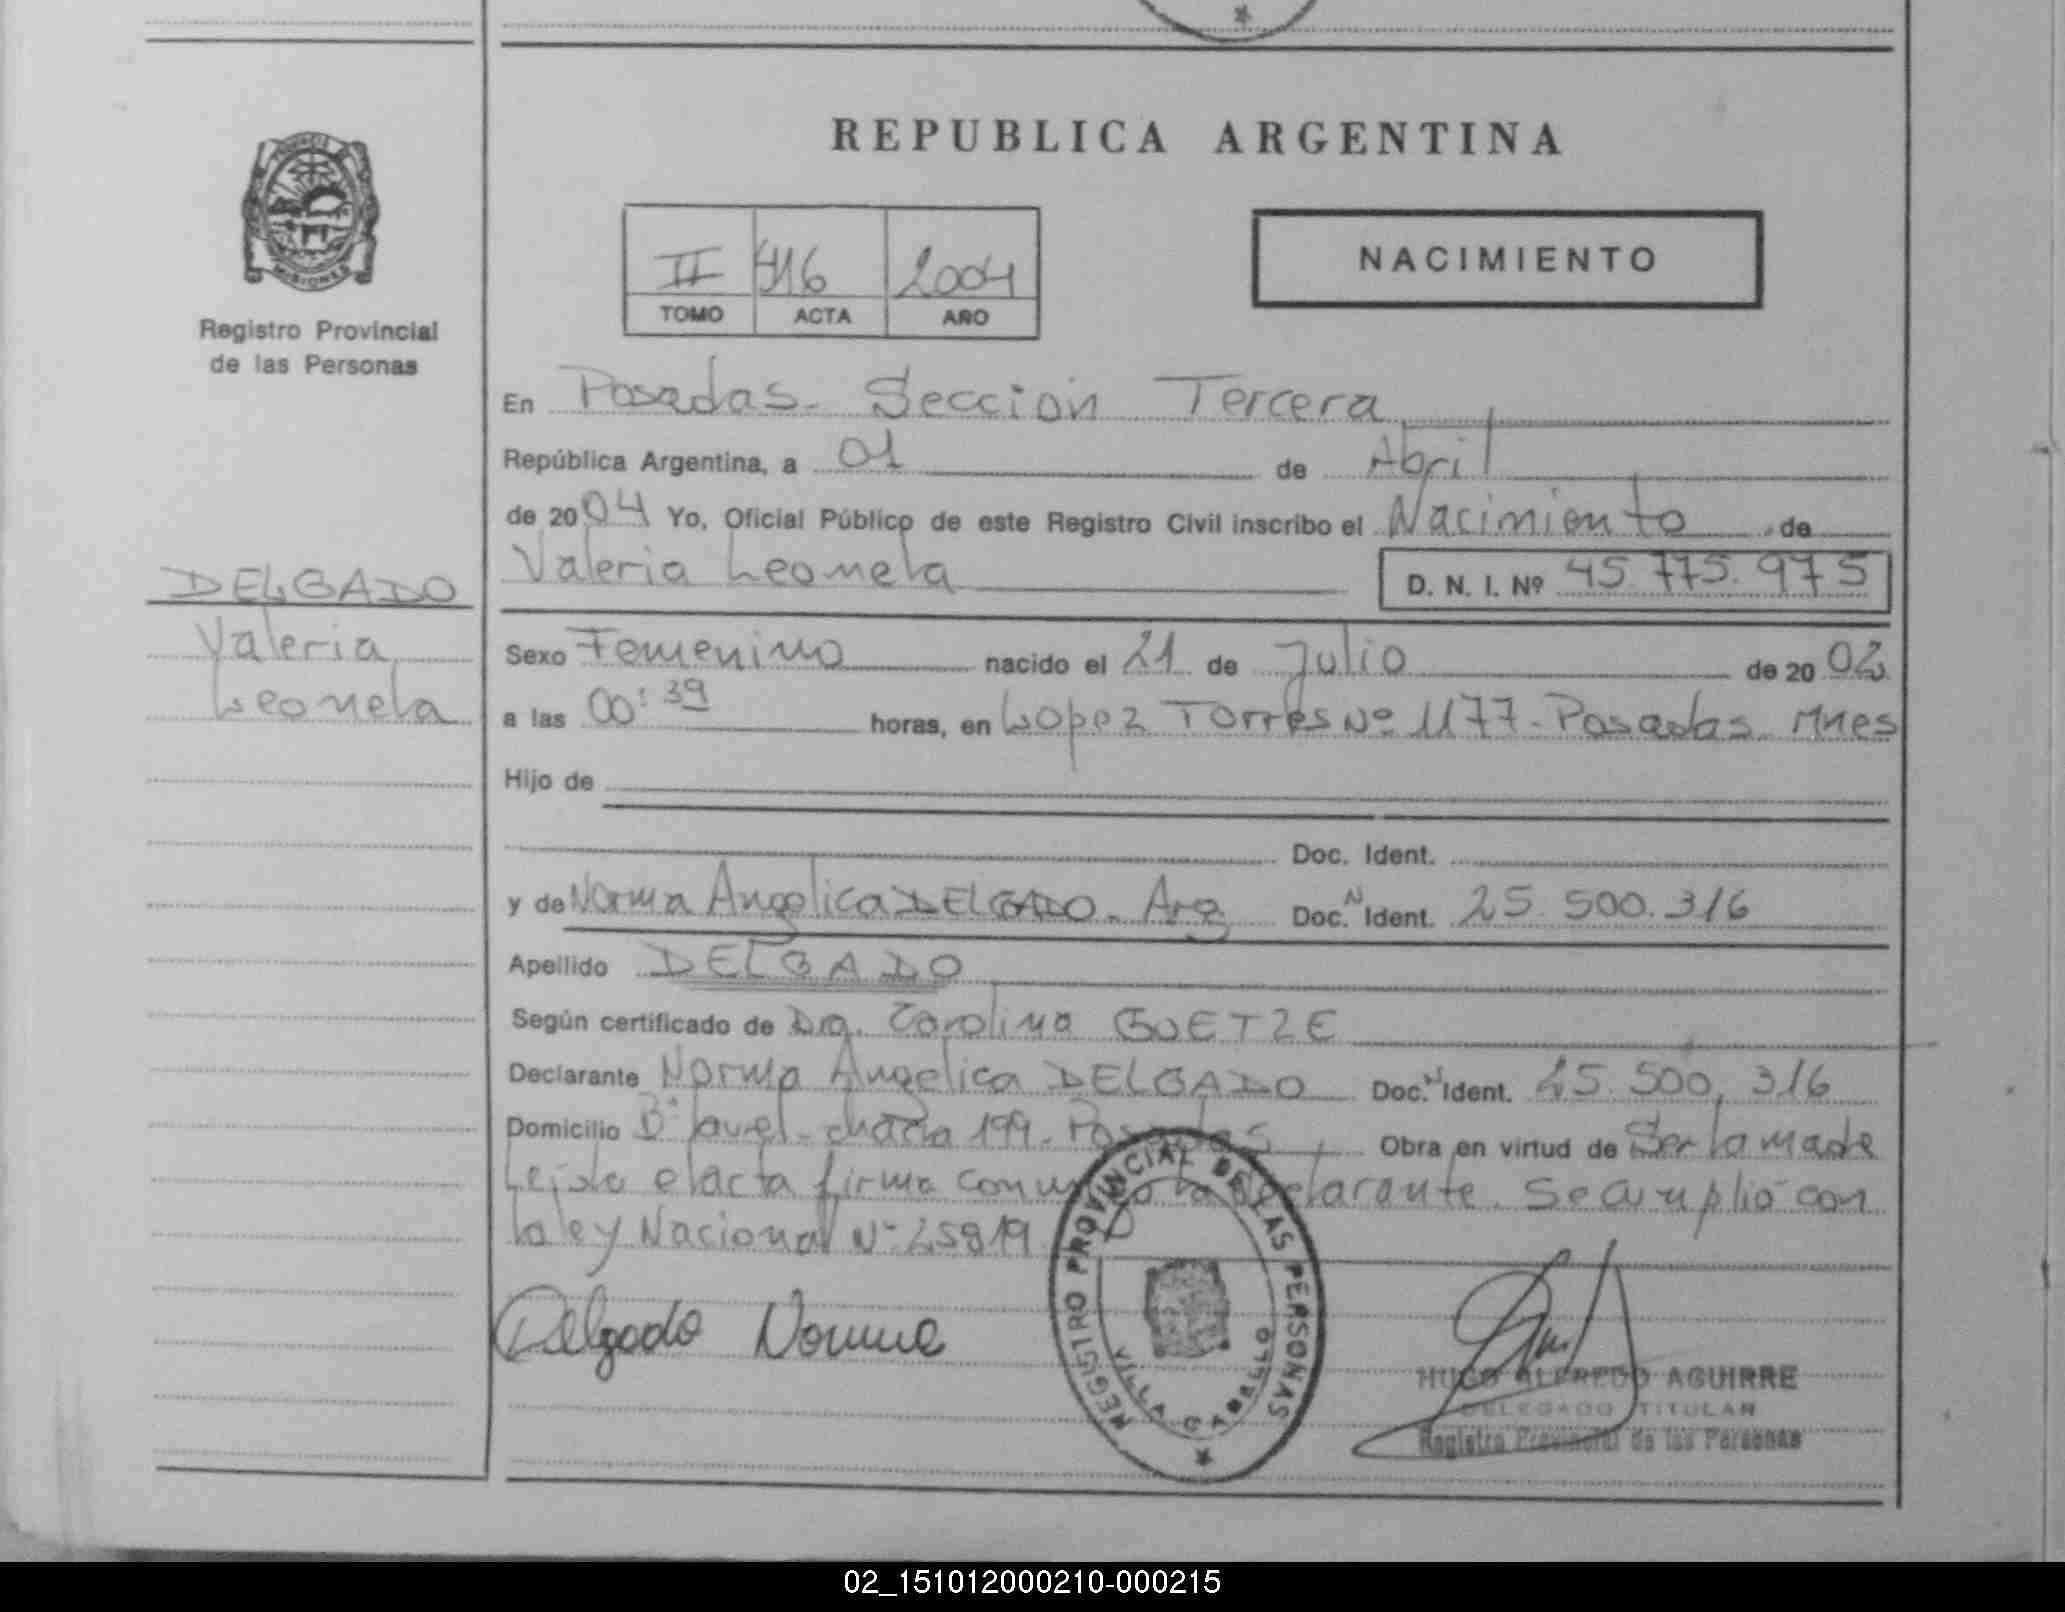 REPUBLICA ARGENTINA
II 416 2004
TOMO ACTA AÑO
NACIMIENTO
Registro Provincial
de las Personas
DELGADO
Valeria
Leonela
En Posadas. Sección Tercera
República Argentina, a 01 de Abril
de 2004 Yo, Oficial Público de este Registro Civil inscribo el Nacimiento de
Valeria Leonela D. N. I. Nº 45.775.975
Sexo Femenino nacido el 21 de Julio de 2002
a las 00:39 horas, en Lopez Torres Nº 1177-Posadas. Mnes
Hijo de
Doc. Ident.
y de Norma Angelica DELGADO. Arg Doc. N Ident. 25.500.316
Apellido DELGADO
Según certificado de Dra. Carolina GOETZE
Declarante Norma Angelica DELGADO Doc. N Ident. 25.500.316
Domicilio Bº chacra 199-Posadas Obra en virtud de Ser la madre
Leida el acta firma la declarante. Se cumplió con
la ley Nacional Nº 25819
Delgado Norma
REGISTRO PROVINCIAL DE LAS PERSONAS
VILLA CABELLO
HUGO ALFREDO AGUIRRE
DELEGADO TITULAR
Registro Provincial de las Personas
02_151012000210-000215